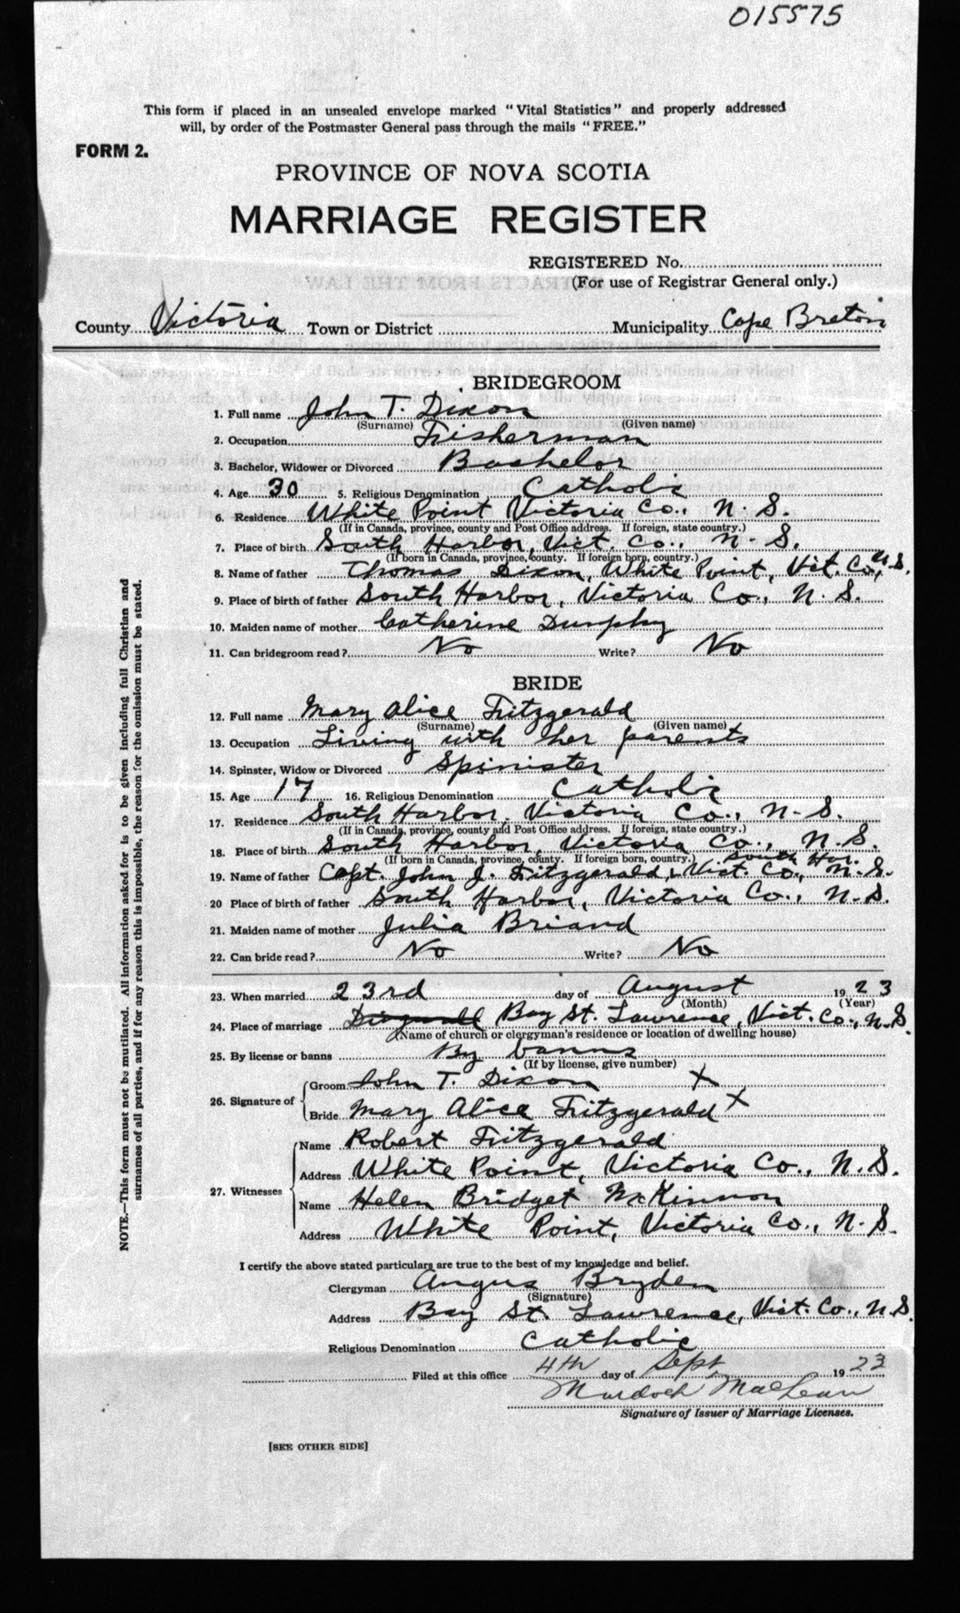 015575
This form if placed in an unsealed envelope marked "Vital Statistics" and properly addressed
will, by order of the Postmaster General pass through the mails "FREE."
FORM 2.
PROVINCE OF NOVA SCOTIA
MARRIAGE REGISTER
REGISTERED No.
(For use of Registrar General only.)
County Victoria Town or District Municipality Cape Breton
BRIDEGROOM
1. Full name John T. Dixon
(Surname) (Given name)
2. Occupation Fisherman
3. Bachelor, Widower or Divorced Bachelor
4. Age 30 5. Religious Denomination Catholic
6. Residence White Point Victoria Co., N. S.
(If in Canada, province, county and Post Office address. If foreign, state country.)
7. Place of birth South Harbor, Vict. Co., N. S.
(If born in Canada, province, county. If foreign born, country.)
8. Name of father Thomas Dixon, White Point, Vict. Co., N.S.
9. Place of birth of father South Harbor, Victoria Co., N. S.
10. Maiden name of mother Catherine Dunphy
11. Can bridegroom read? No Write? No
BRIDE
12. Full name Mary Alice Fritzgerald
(Surname) (Given name)
13. Occupation Living with her parents
14. Spinster, Widow or Divorced Spinister
15. Age 17 16. Religious Denomination Catholic
17. Residence South Harbor, Victoria Co., N. S.
(If in Canada, province, county and Post Office address. If foreign, state country.)
18. Place of birth South Harbor, Victoria Co., N. S.
(If born in Canada, province, county. If foreign born, country.) South Har.
19. Name of father Capt. John J. Fitzgerald, Vict. Co., N. S.
20 Place of birth of father South Harbor, Victoria Co., N. S.
21. Maiden name of mother Julia Briand
22. Can bride read? No Write? No
23. When married 23rd day of August 1923
(Month) (Year)
24. Place of marriage Dingwall Bay St. Lawrence, Vict. Co., N.S.
(Name of church or clergyman's residence or location of dwelling house)
25. By license or banns By banns
(If by license, give number)
26. Signature of
Groom John T. Dixon X
Bride Mary Alice Fritzgerald X
27. Witnesses
Name Robert Fritzgerald
Address White Point, Victoria Co., N. S.
Name Helen Bridget McKinnon
Address White Point, Victoria Co., N. S.
I certify the above stated particulars are true to the best of my knowledge and belief.
Clergyman Angus Bryden
(Signature)
Address Bay St. Lawrence, Vict. Co., N. S.
Religious Denomination Catholic
Filed at this office 4th day of Sept. 1923
Murdoch MacLean
Signature of Issuer of Marriage Licenses.
[SEE OTHER SIDE]
NOTE.—This form must not be mutilated. All information asked for is to be given including full Christian and
surnames of all parties, and if for any reason this is impossible, the reason for the omission must be stated.